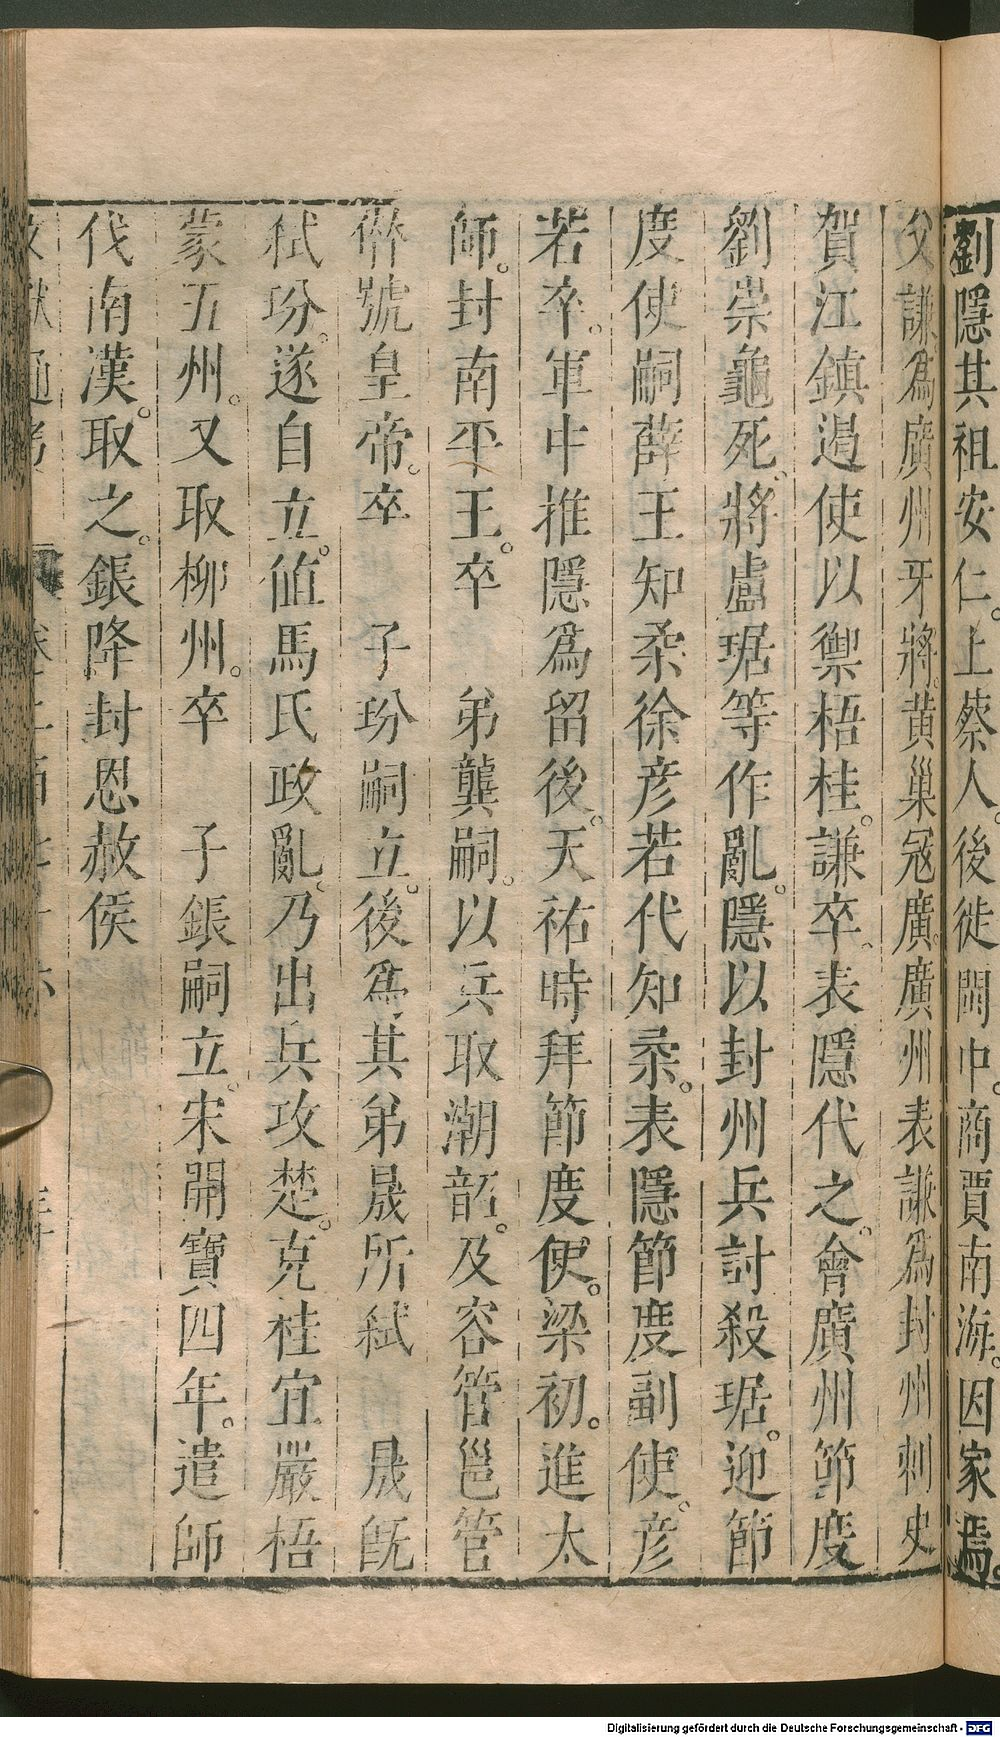 劉隱其祖安仁。上蔡人。後徙閩中。商賈南海。因家焉。
父謙爲廣州牙將。黄巢寇廣。廣州表謙爲封州刺史
賀江鎮遏使以禦梧桂。謙卒。表隱代之。會廣州節度
劉崇龜死。將盧琚等作亂。隱以封州兵討殺琚。迎節
度使嗣薛王知柔徐彥若代知柔。表隱節度副使。彥
若卒。軍中推隱爲留後。天祐時拜節度使。梁初。進太
師。封南平王。卒　弟龑嗣。以兵取潮韶。及容管邕管
僭號皇帝。卒　子玢嗣立。後爲其弟晟所弑　晟旣
弑玢。遂自立。値馬氏政亂。乃出兵攻楚。克桂宜嚴梧
蒙五州。又取柳州。卒　子鋹嗣立。宋開寶四年。遣師
伐南漢。取之。鋹降封恩赦侯
Digitalisierung gefördert durch die Deutsche Forschungsgemeinschaft - DFG